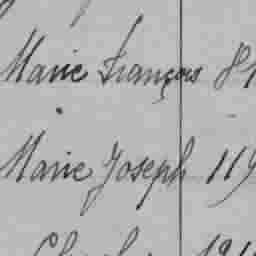 Marie François 81
Marie Joseph 119